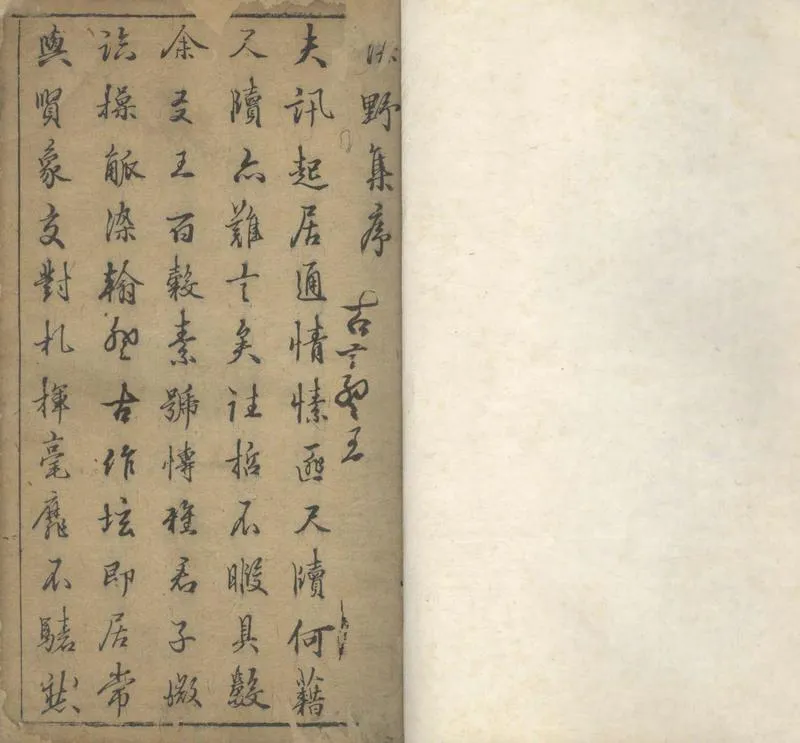 野集序
夫訊起居通情愫匪尺牘何藉
尺牘亦難言矣往哲不暇具數
余友王百穀素號博雅君子微
論操觚染翰古作坛即居常
與賢豪交對札揮毫靡不騞然